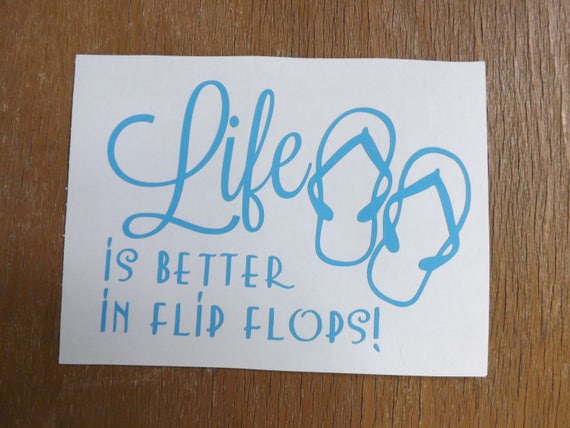 Life
is better
in flip flops!